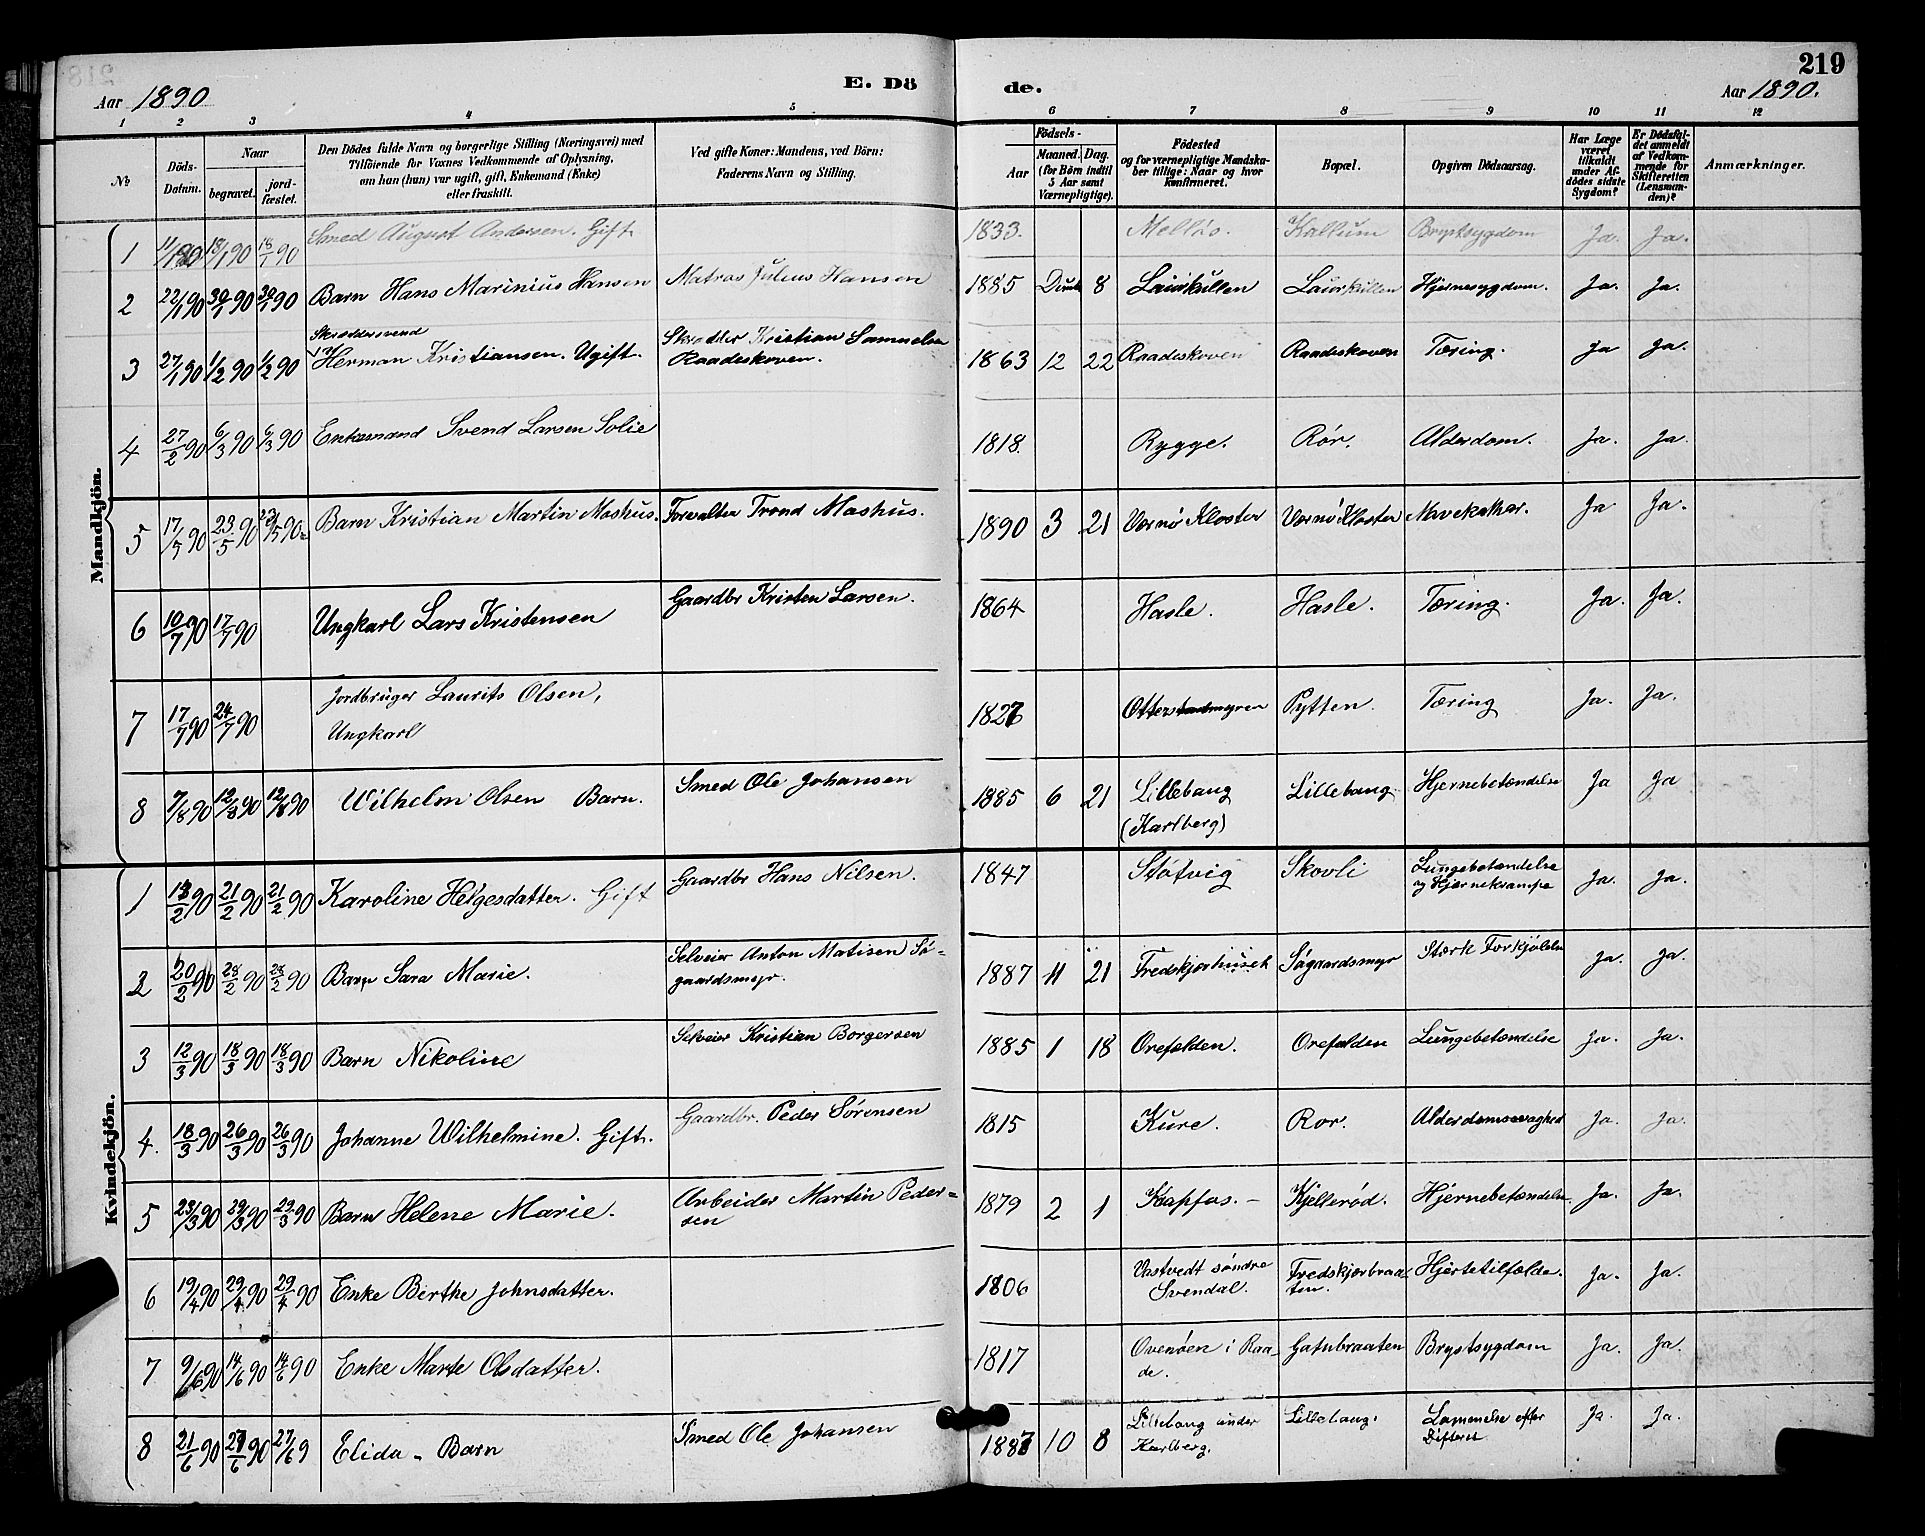 219
Aar 1890
E. Dö
de.
Aar 1890.
1 2 3 4 5 6 7 8 9 10 11 12
No
Döds-Datum.
Naar
begravet.
jord-fæstet.
Den Dödes fulde Navn og borgerlige Stilling (Næringsvei) med
Tilföiende for Voxnes Vedkommende af Oplysning,
om han (hun) var ugift, gift, Enkemand (Enke)
eller fraskilt.
Ved gifte Koner: Mandens, ved Börn:
Faderens Navn og Stilling.
Födsels-
Aar
Maaned. Dag.
(for Børn indtil
5 Aar samt
Værnepligtige).
Födested
og for værnepligtige Mandska-
ber tillige: Naar og hvor
Konfirmeret.
Bopæl.
Opgiven Dödsaarsag.
Har Læge
været
tilkaldt
under Af-
dödes sidste
Sygdom?
Er Dödsfal-
det anmeldt
af Vedkom-
mende for
Skifteretten
(Lensman-
den)?
Anmærkninger.
Mandkjön.
1 11/1 90 18/1 90 18/1 90 Smed August Andersen. Gift 1833. Melløs. Kallum Brystsygdom Ja. Ja.
2 22/1 90 30/1 90 30/1 90 Barn Hans Marinius Hansen Matros Julius Hansen 1885 8 Ja. Hjernesygdom. Ja.
Skræddersvend
3 27/1 90 1/2 90 1/2 90 Herman Kristiansen. Ugift. Skrædder Kristian Samuelsen
Raadeskoven. 1863 12 22 Raadeskoven Raadeskoven Tæring. Ja Ja.
4 27/2 90 6/3 90 6/3 90 Enkemand Svend Larsen Solie 1818. Rygge. Rör. Alderdom. Ja. Ja.
5 17/5 90 23/5 90 23/5 90. Barn Kristian Martin Moshus. Forvalter Trond Moshus. 1890 3 21 Vernø Kloster Vernø Kloster Mavekathar. Ja Ja.
6 10/7 90 17/7 90 Ungkarl Lars Kristensen Gaardbr Kristen Larsen. 1864 Hasle. Hasle. Tæring. Ja. Ja.
7 17/7 90 24/7 90 Jordbruger Laurits Olsen,
Ungkarl 1827 Pytten. Tæring Ja. Ja.
8 7/8 90 12/8 90 12/8 90 Wilhelm Olsen Barn. Smed Ole Johansen 1885 6 21 Lillebaug
(Karlberg) Lillebaug Hjernebetændelse Ja Ja
Kvindekjön.
1 13/2 90 21/2 90 21/2 90 Karoline Helgesdatter. Gift Gaardbr Hans Nilsen. 1847 Støtvig Skovli Lungebetændelse
og Hjernekrampe Ja. Ja.
2 20/2 90 28/2 90 28/2 90 Barn Sara Marie. Selveier Anton Matisen Sø-
gaardsmyr. 1887 11 21 Fredskjærhuset Søgaardsmyr Stærk Forkjølelse Ja. Ja.
3 12/3 90 18/3 90 18/3 90 Barn Nikoline Selveier Kristian Borgersen 1885 1 18 Orefalden. Orefalden Lungebetændelse Ja. Ja.
4. 18/3 90 26/3 90 26/3 90 Johanne Wilhelmine. Gift. Gaardbr. Peder Sörensen 1815 Kure. Rør. Alderdomssvaghed Ja. Ja.
5 23/3 90 29/3 90 29/3 90 Barn Helene Marie. Arbeider Martin Peder=
sen 1879 2 1 Kapfos. - Kjellerød. Hjernebetændelse Ja. Ja.
6 19/4 90 29/4 90 29/4 90 Enke Birthe Johnsdatter. 1806 Vastvedt søndre
Svendal. Fredskjærbraa-
ten. Hjertetilfælde. Ja. Ja.
7 9/6 90 14/6 90 14/6 90 Enke Marte Olsdatter. 1817 Ovenöen i Raa-
de. Gatubraaten Brystsygdom Ja. Ja.
8 21/6 90 27/6 90 27/6 9 Elida - Barn Smed Ole Johansen 1887 10 8 Lillebaug under
Karlberg. Lillebaug. Lammelse efter
Difterit Ja. Ja.